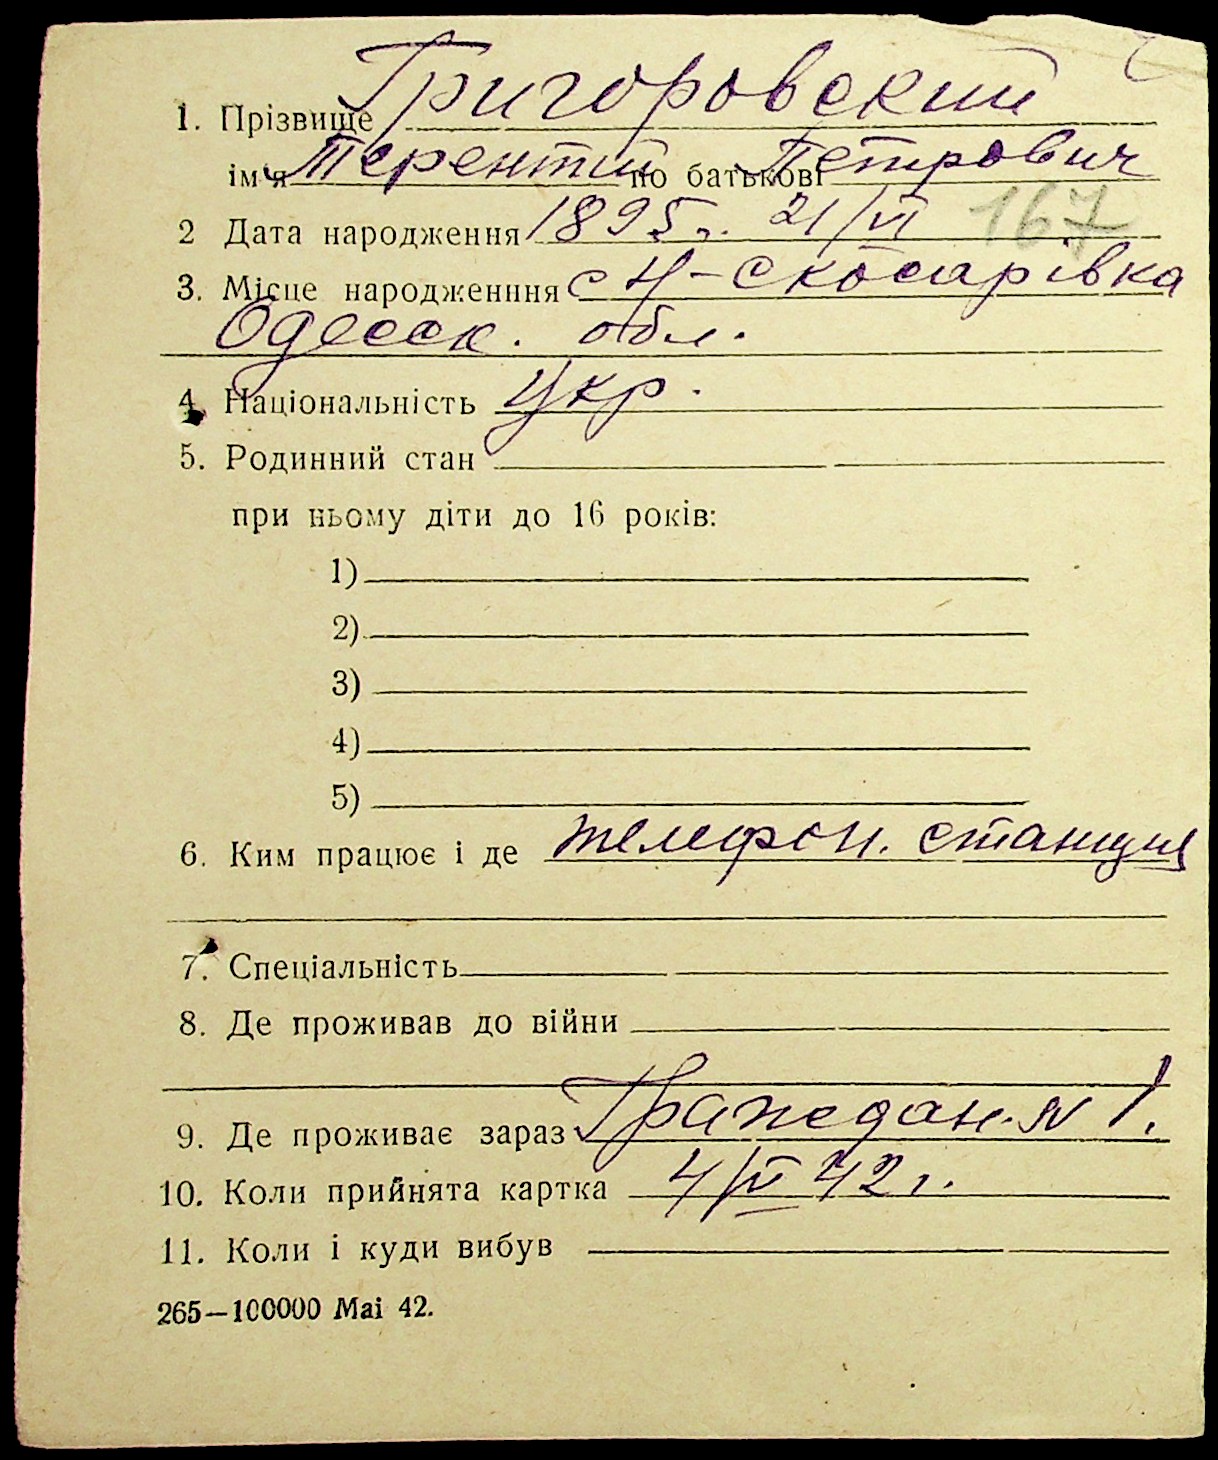 1. Прізвище Григоровский
ім'я Терентий по батькові Петрович
2 Дата народження 1895 г. 21/VI 167
3. Місце народженння с Н-Скосарівка
Одесск. обл.
4. Національність Укр.
5. Родинний стан
при ньому діти до 16 років:
1)
2)
3)
4)
5)
6. Ким працює і де телефон. станция
7. Спеціальність
8. Де проживав до війни
9. Де проживає зараз Граждан. N 1.
10. Коли прийнята картка 4/VI 42 г.
11. Коли і куди вибув
265—100000 Mai 42.